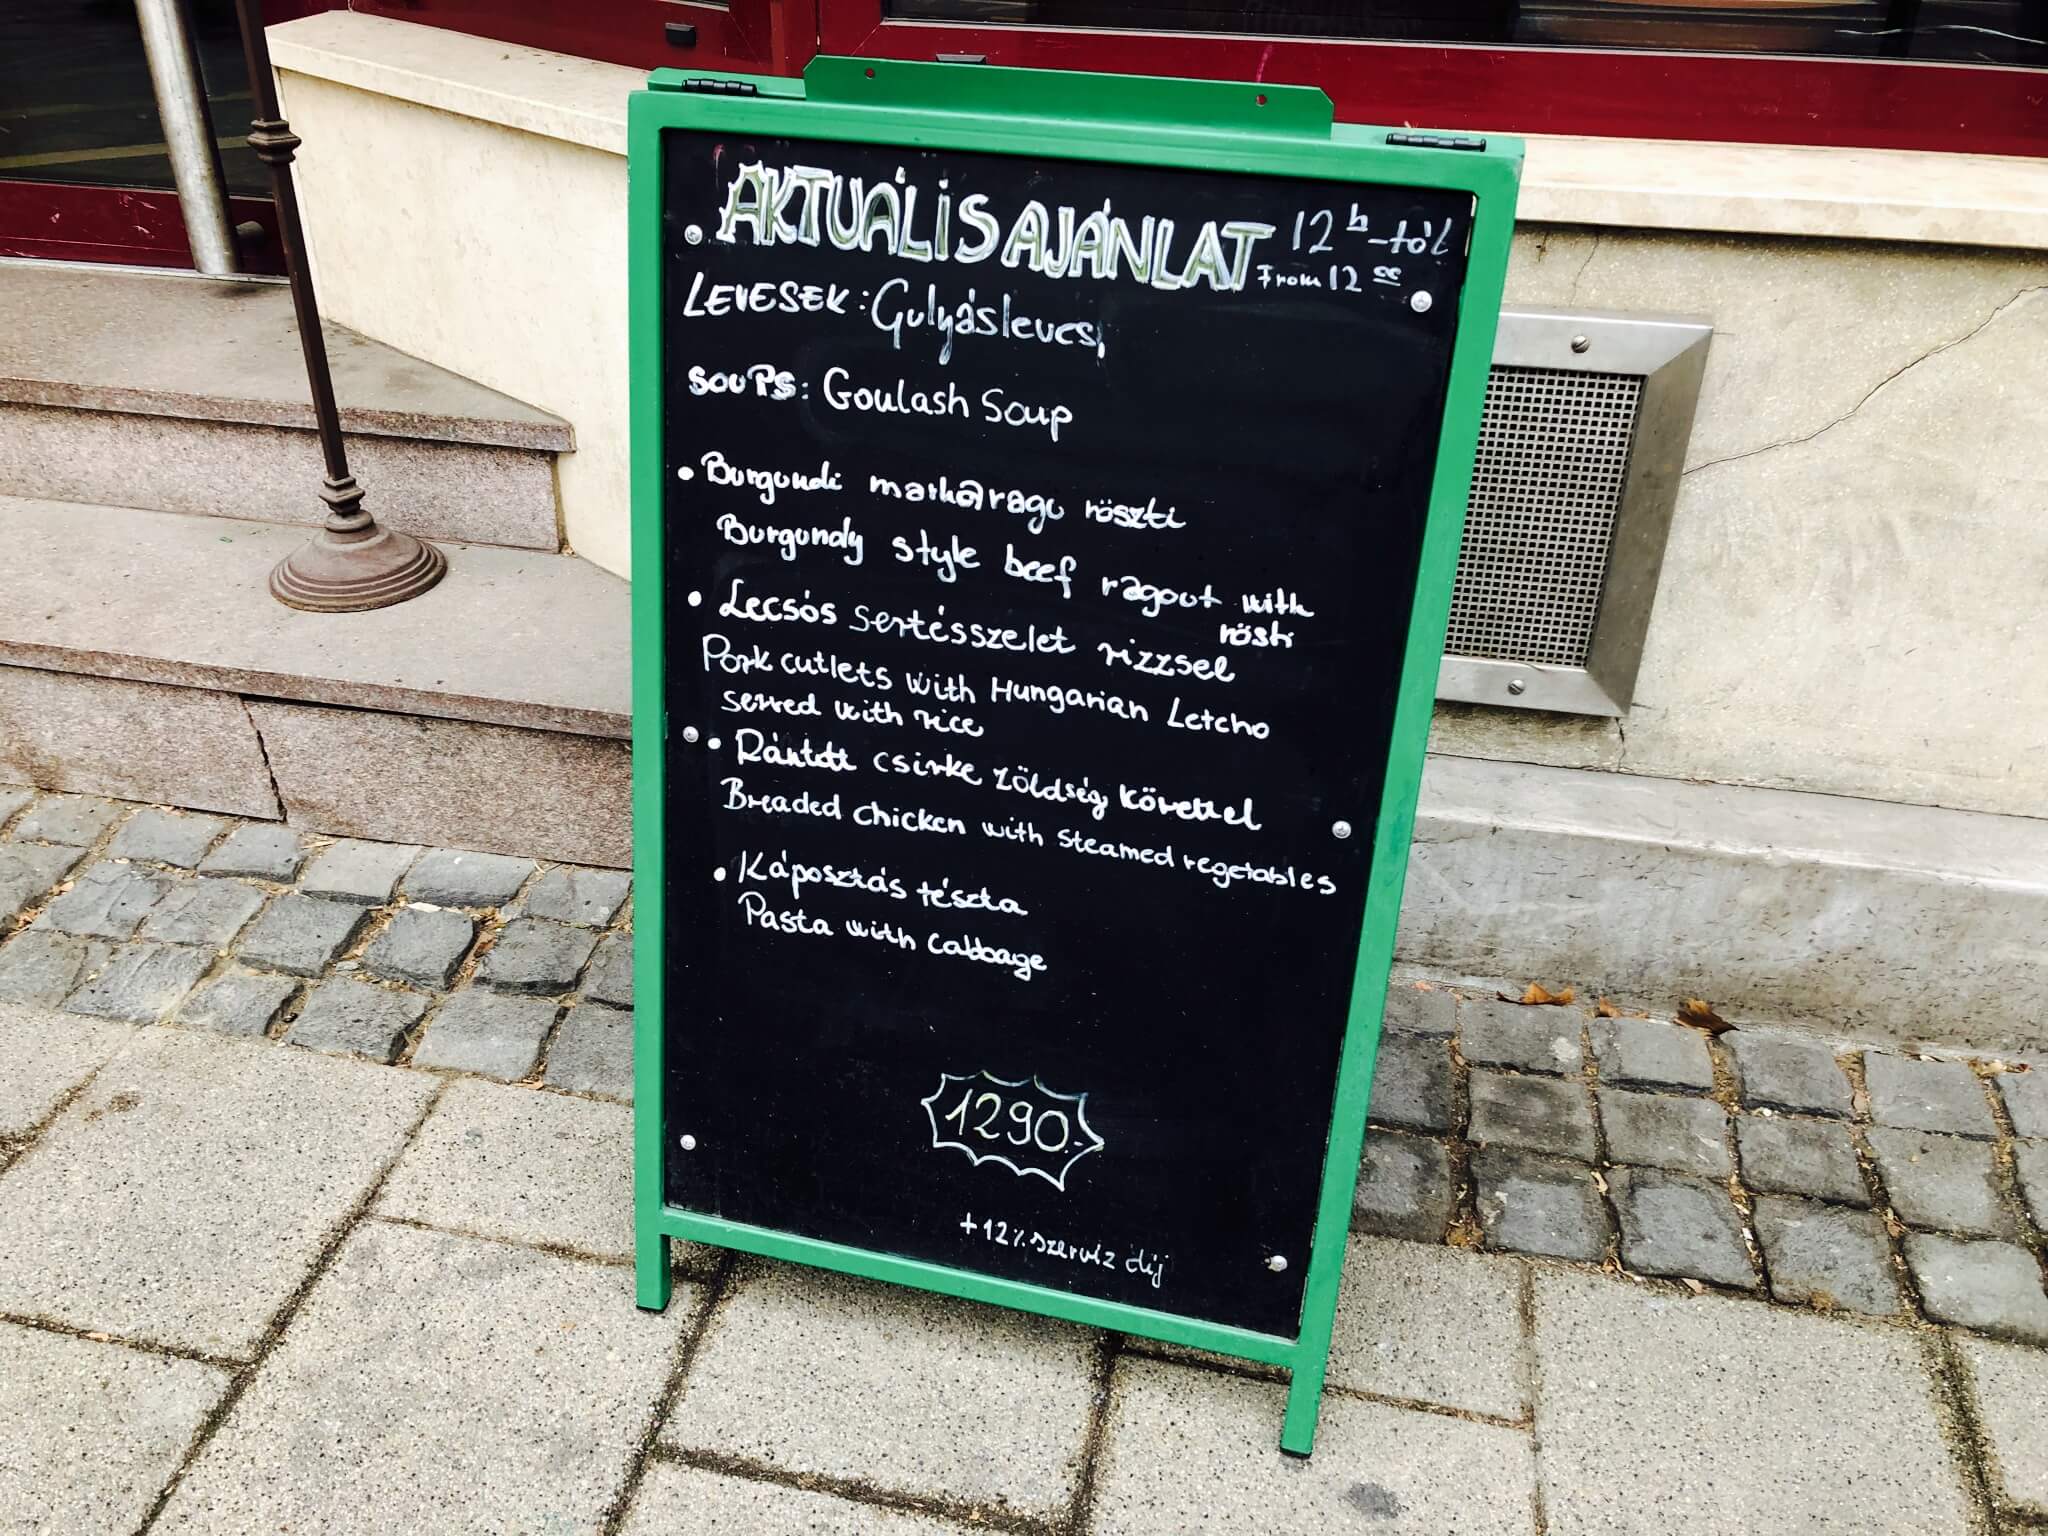 AKTUÁLIS AJÁNLAT 12 h-tól
From 12 00
LEVESEK: Gulyásleves,
SOUPS: Goulash Soup
• Burgundi marharagu röszti
Burgundy style beef ragout with
rösti
• Lecsós sertésszelet rizzsel
Pork cutlets with Hungarian Letcho
served with rice
• Rántott csirke zöldség körettel
Breaded chicken with steamed vegetables
• Káposztás tészta
Pasta with cabbage
1290.-
+12% szerviz díj